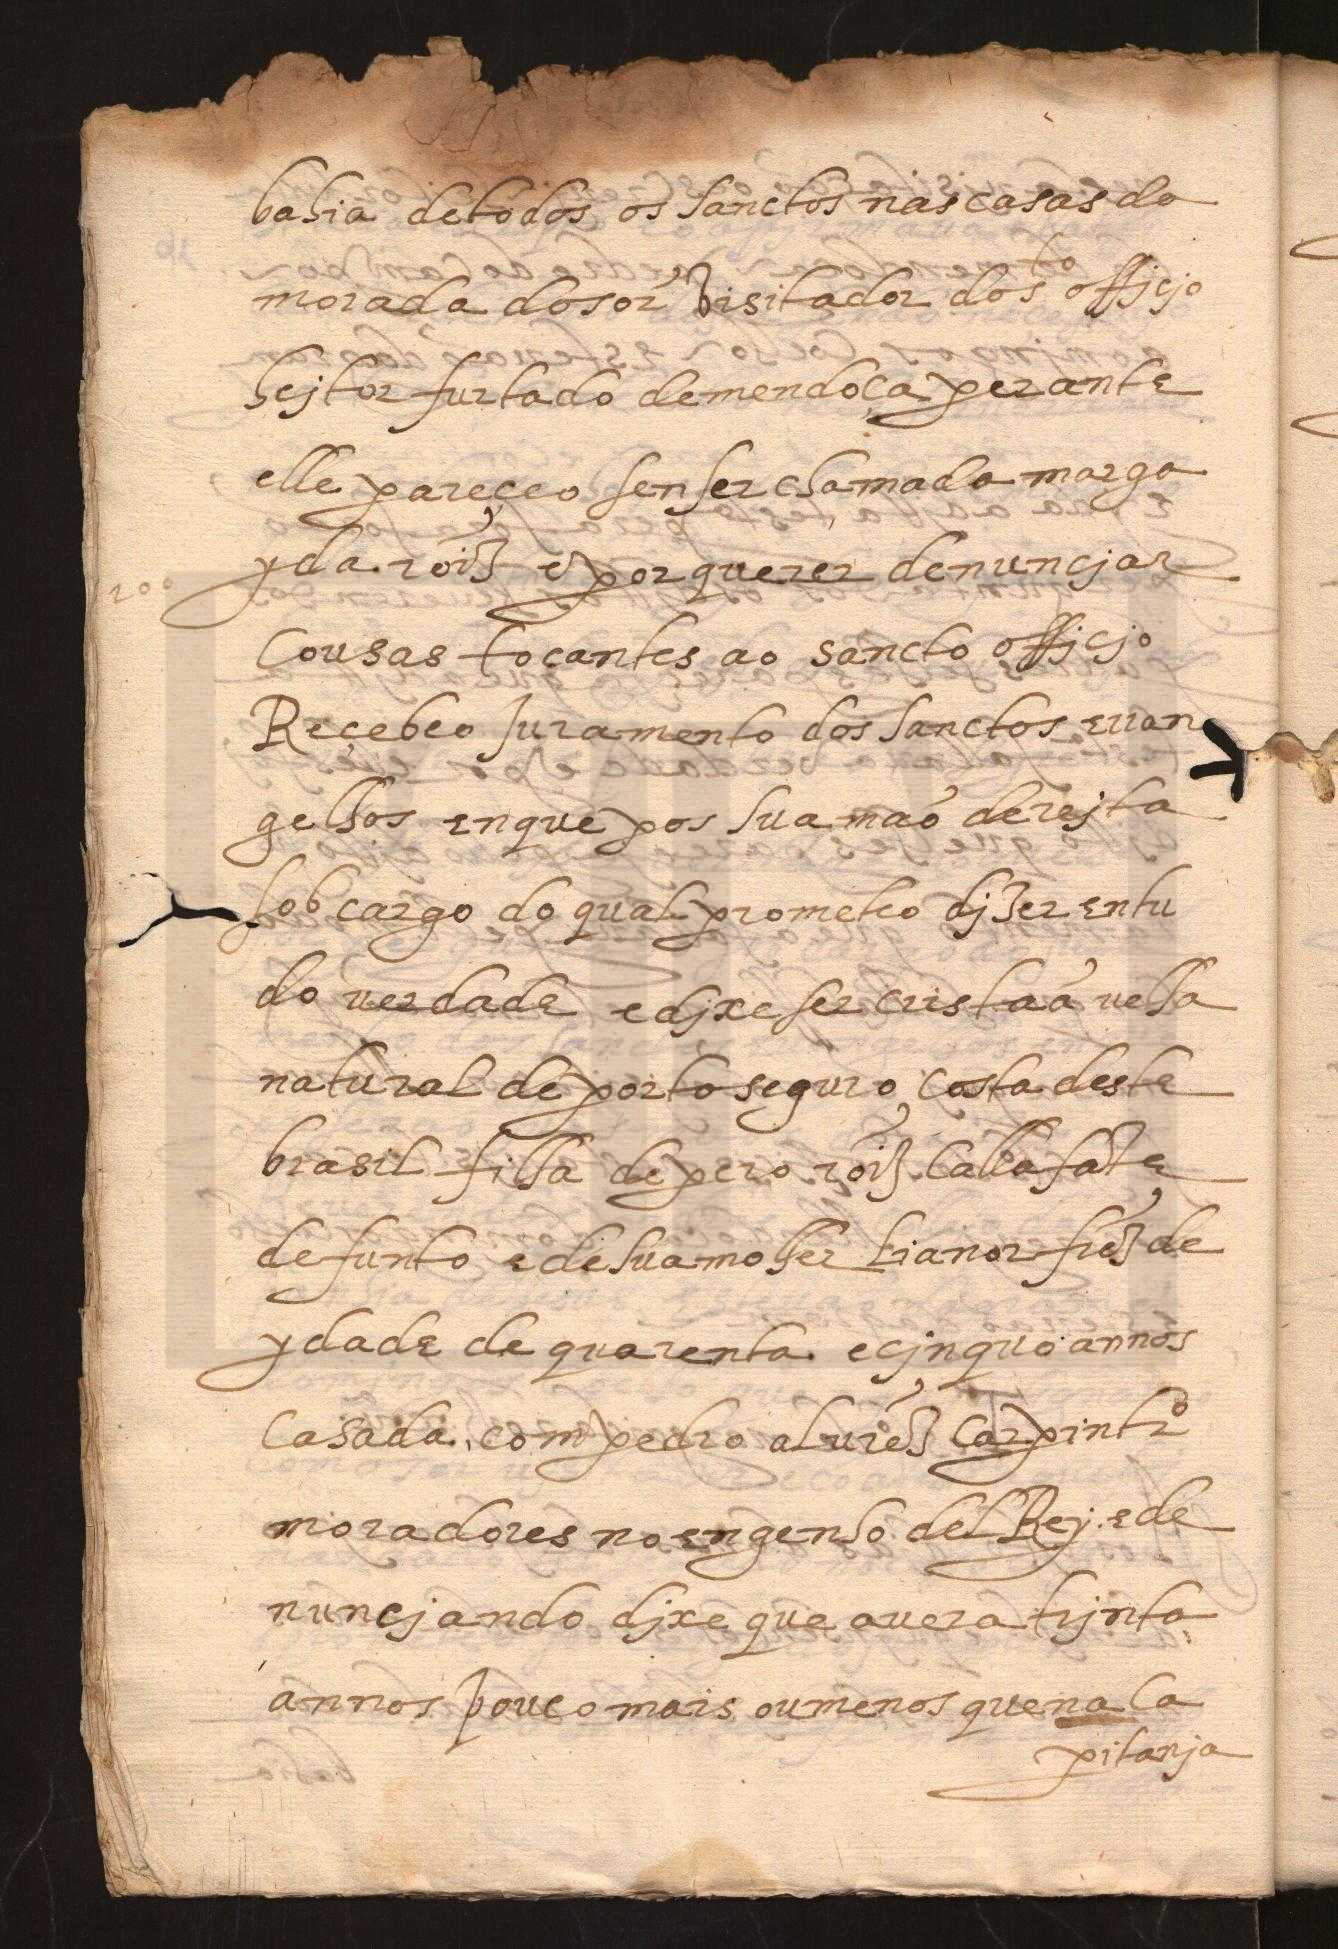 bahia de todos os sanctos nas casas da
morada do sor visitador do sto officjo
hejtor furtado de mendoça perante
elle pareçeo sen ser chamada marga
yda roiz e por querer denuncjar
cousas tocantes ao sancto officjo
Reçebeo juramento dos sanctos euan
gelhos en que pos sua mão derejta
sob cargo do qual prometeo djzer en tu
do verdade e djxe ser cristaã velha
natural de porto seguro costa deste
brasil filha de pero roiz callafate
defunto e de sua molher Lianor friz de
ydade de quarenta e cjnquo annos
casada com pedro alurez carpintro
moradores no engenho del Rej e de
nuncjando djxe que auera trjnta
annos pouco mais ou menos que na ca
pitanja